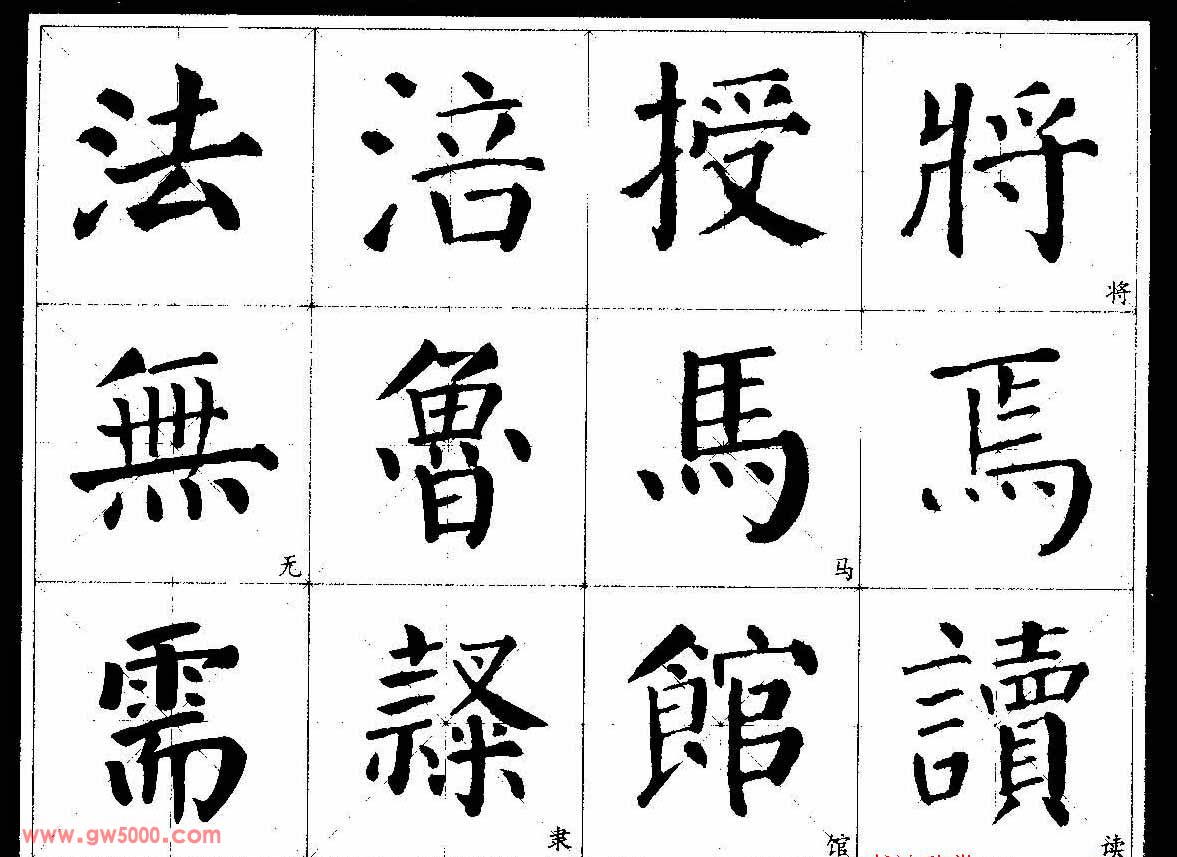 法 涪 授 將
将
無 魯 馬 焉
无 马
需 隸 館 讀
隶 馆 读
www.gw5000.com